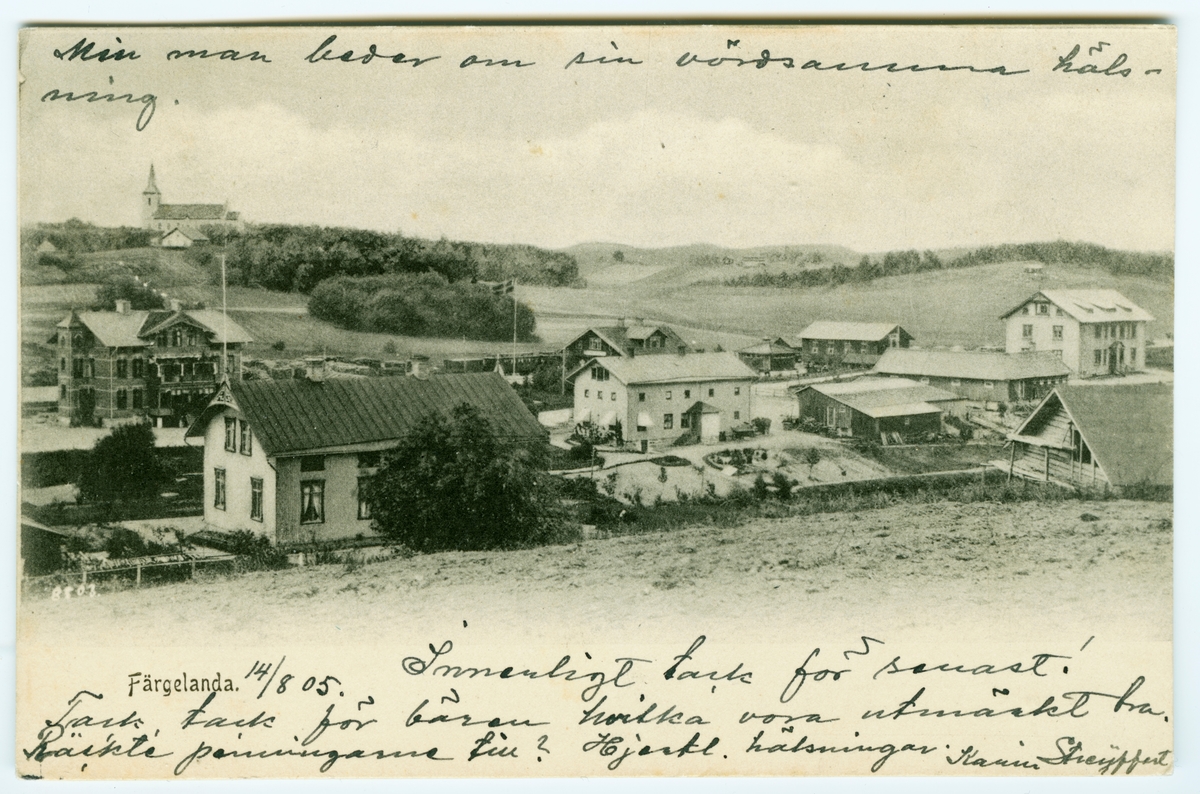 Min man beder om sin vördsamma häls-
ning.
8802
Färgelanda. 14/8 05. Innerligt tack för senast!
Tack, tack för bären hvilka voro utmärkt bra.
Räckte penningarne till? Hjertl. hälsningar. Karin Streÿffert